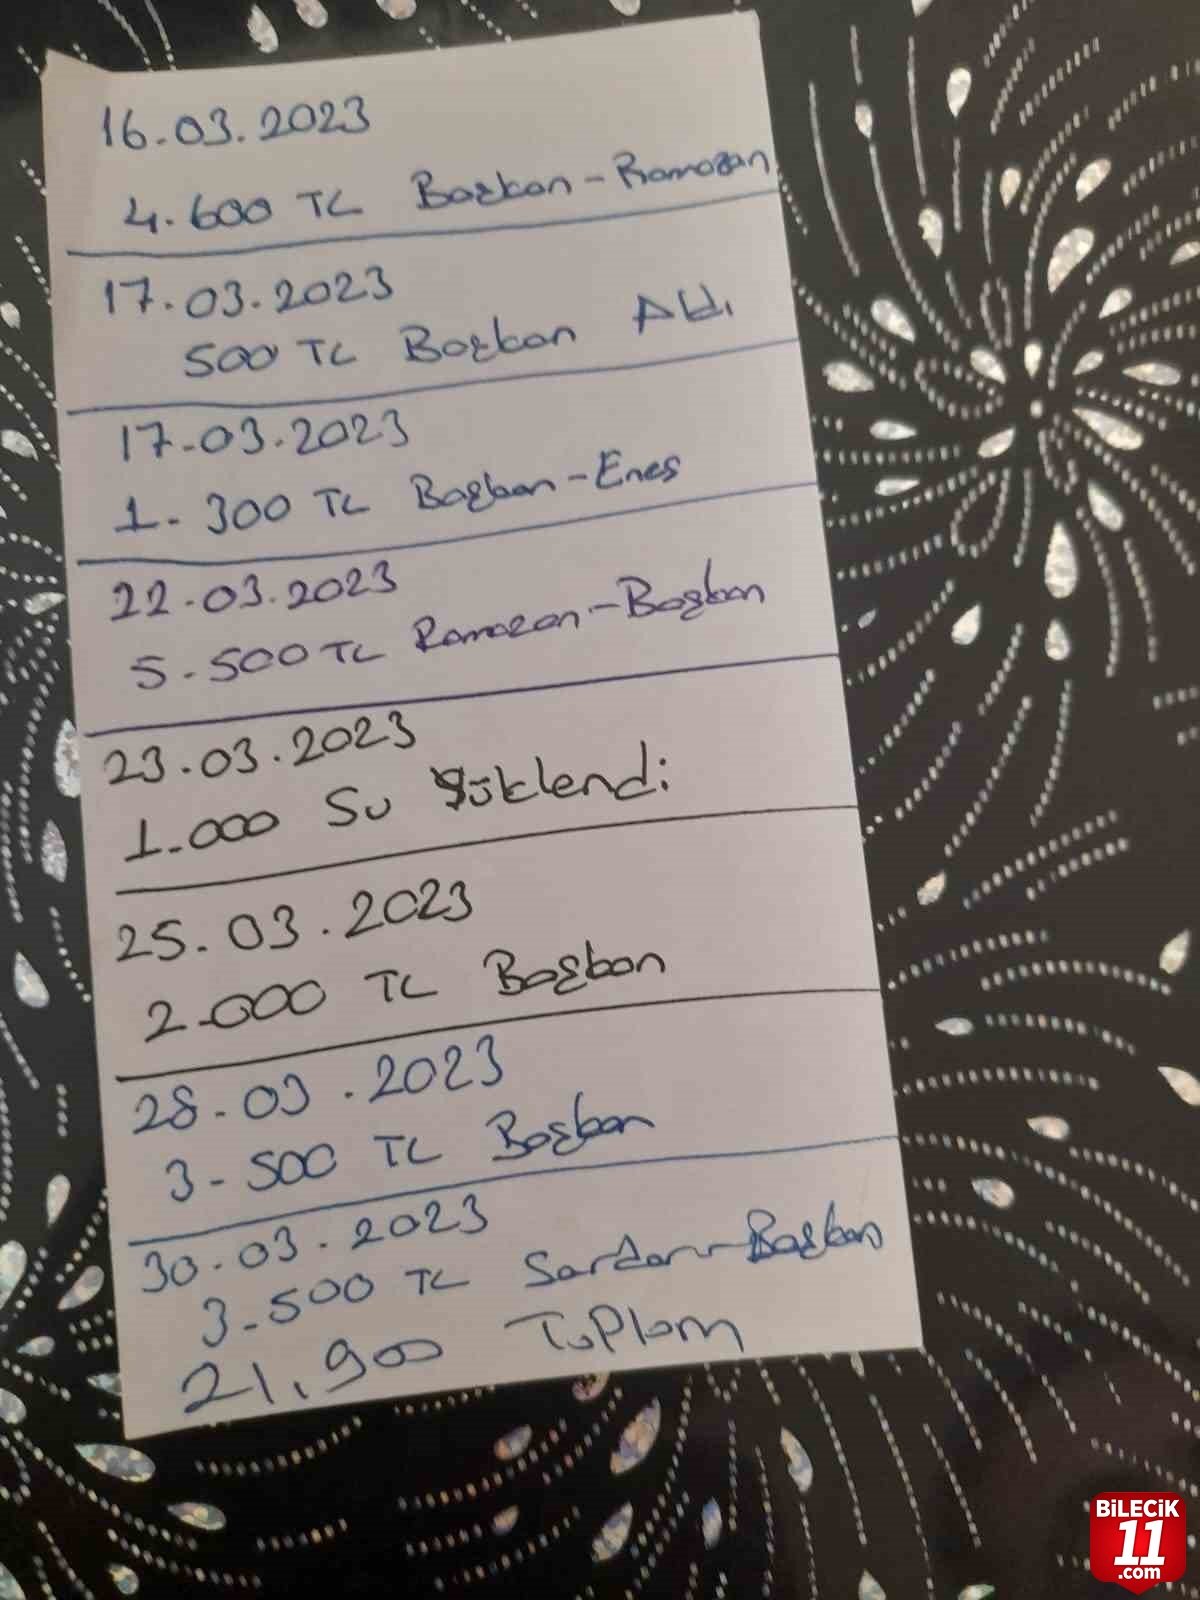 16.03.2023
4.600 TL Başkan - Ramazan
17.03.2023
500 TL Başkan Aldı
17.03.2023
1.300 TL Başkan - Enes
22.03.2023
5.500 TL Ramazan - Başkan
23.03.2023
1.000 Su Yüklendi
25.03.2023
2.000 TL Başkan
28.03.2023
3.500 TL Başkan
30.03.2023
3.500 TL Serdar - Başkan
21,900 Toplam
BiLECiK
11
.com